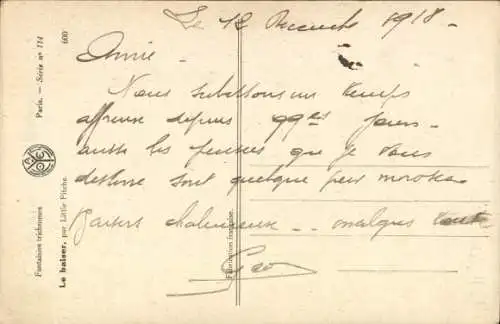 Le 12 Decembre 1918 -
Amie
Nous subissons un temps
affreuse depuis 99es jours -
aussi les pensées que je vous
destine sont quelque peu moroses
Baisers chaleureux -- malgré tout
Geo
Fantaisies trichromes
Le baiser, par Little Pitche.
Paris. — Série nº 114
600
Fabrication française